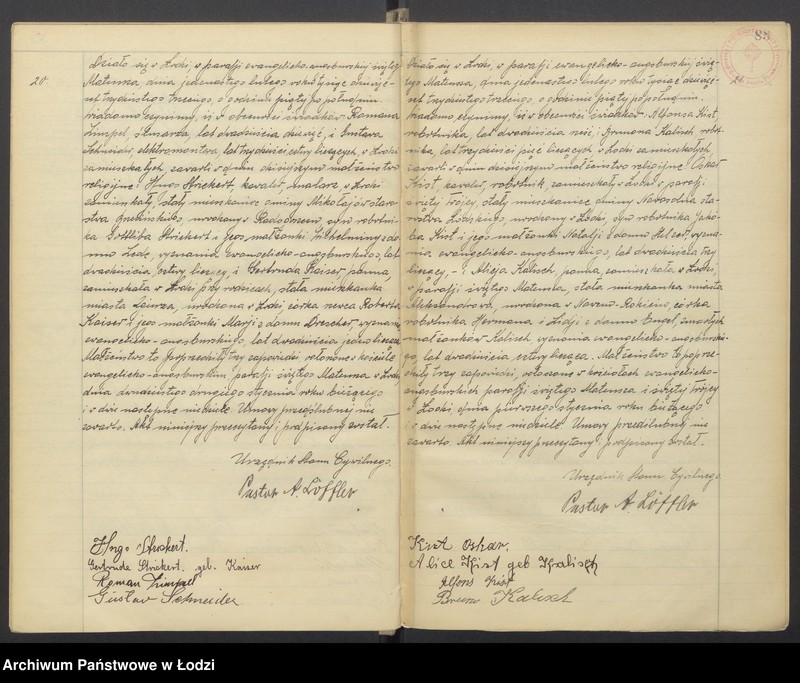 20
Działo się w Łodzi, w parafji ewangelicko-augsburskiej świętego
Mateusza, dnia jedenastego lutego roku tysiąc dziewięć-
set trzydziestego trzeciego, o godzinie piątej po południu.
Wiadomo czynimy, iż w obecności świadków: Romana
Limpel, ślusarza, lat dwadzieścia dziewięć, i Gustava
Schneider, elektromontera, lat trzydzieści cztery liczących, w Łodzi
zamieszkałych, zawarto w dniu dzisiejszym małżeństwo
religijne: Hugo Striekert, kawaler, malarz, w Łodzi
zamieszkały, stały mieszkaniec gminy Mikołajów staro-
stwa, urodzony w Radogoszczu, syn robotni-
ka Gottliba Striekert i jego małżonki Wilhelminy z do-
mu, wyznania ewangelicko-augsburskiego, lat
dwadzieścia cztery liczący, i Gertruda Kaiser, panna,
zamieszkała w Łodzi przy rodzicach, stała mieszkanka
miasta, urodzona w Łodzi, córka szewca Roberta
Kaiser i jego małżonki Marji z domu Drescher, wyznania
ewangelicko-augsburskiego, lat dwadzieścia jeden licząca.
Małżeństwo to poprzedziły trzy zapowiedzi ogłoszone w kościele
ewangelicko-augsburskim parafji świętego Mateusza w Łodzi,
dnia dwudziestego drugiego stycznia roku bieżącego
i w dwie następne niedziele. Umowy przedślubnej nie
zawarto. Akt niniejszy przeczytany i podpisany został.
Urzędnik Stanu Cywilnego.
Pastor A. Löffler
Hugo Striekert.
Gertrude Striekert. geb. Kaiser
Roman Limpel
Gustav Schneider
88
Działo się w Łodzi, w parafji ewangelicko-augsburskiej świę-
tego Mateusza, dnia jedenastego lutego roku tysiąc dziewięć-
set trzydziestego trzeciego, o godzinie piątej po południu.
Wiadomo czynimy, iż w obecności świadków: Alfonsa Kist,
robotnika, lat dwadzieścia sześć, i Brunona Kalisch, robot-
nika, lat trzydzieści pięć liczących, w Łodzi zamieszkałych
zawarto w dniu dzisiejszym małżeństwo religijne: Oskar
Kist, kawaler, robotnik, zamieszkały w Łodzi, w parafji
świętej Trójcy, stały mieszkaniec gminy Nowosolna sta-
rostwa Łódzkiego, urodzony w Łodzi, syn robotnika Jakó-
ba Kist i jego małżonki Natalji z domu, wyzna-
nia ewangelicko-augsburskiego, lat dwadzieścia trzy
liczący, – i Alicja Kalisch, panna, zamieszkała w Łodzi,
w parafji świętego Mateusza, stała mieszkanka miasta
Aleksandrowa, urodzona w Nowem-Rokiciu, córka
robotnika Hermana i Lidji z domu Engel, zmarłych
małżonków Kalisch, wyznania ewangelicko-augsburskie-
go, lat dwadzieścia cztery licząca. Małżeństwo to poprze-
dziły trzy zapowiedzi, ogłoszone w kościołach ewangelicko-
augsburskich parafji świętego Mateusza i świętej Trójcy
w Łodzi, dnia pierwszego stycznia roku bieżącego
i w dwie następne niedziele. Umowy przedślubnej nie
zawarto. Akt niniejszy przeczytany i podpisany został.
Urzędnik Stanu Cywilnego.
Pastor A. Löffler
Kist Oskar.
Alice Kist geb Kalisch
Alfons Kist
Bruno Kalisch
Archiwum Państwowe w Łodzi